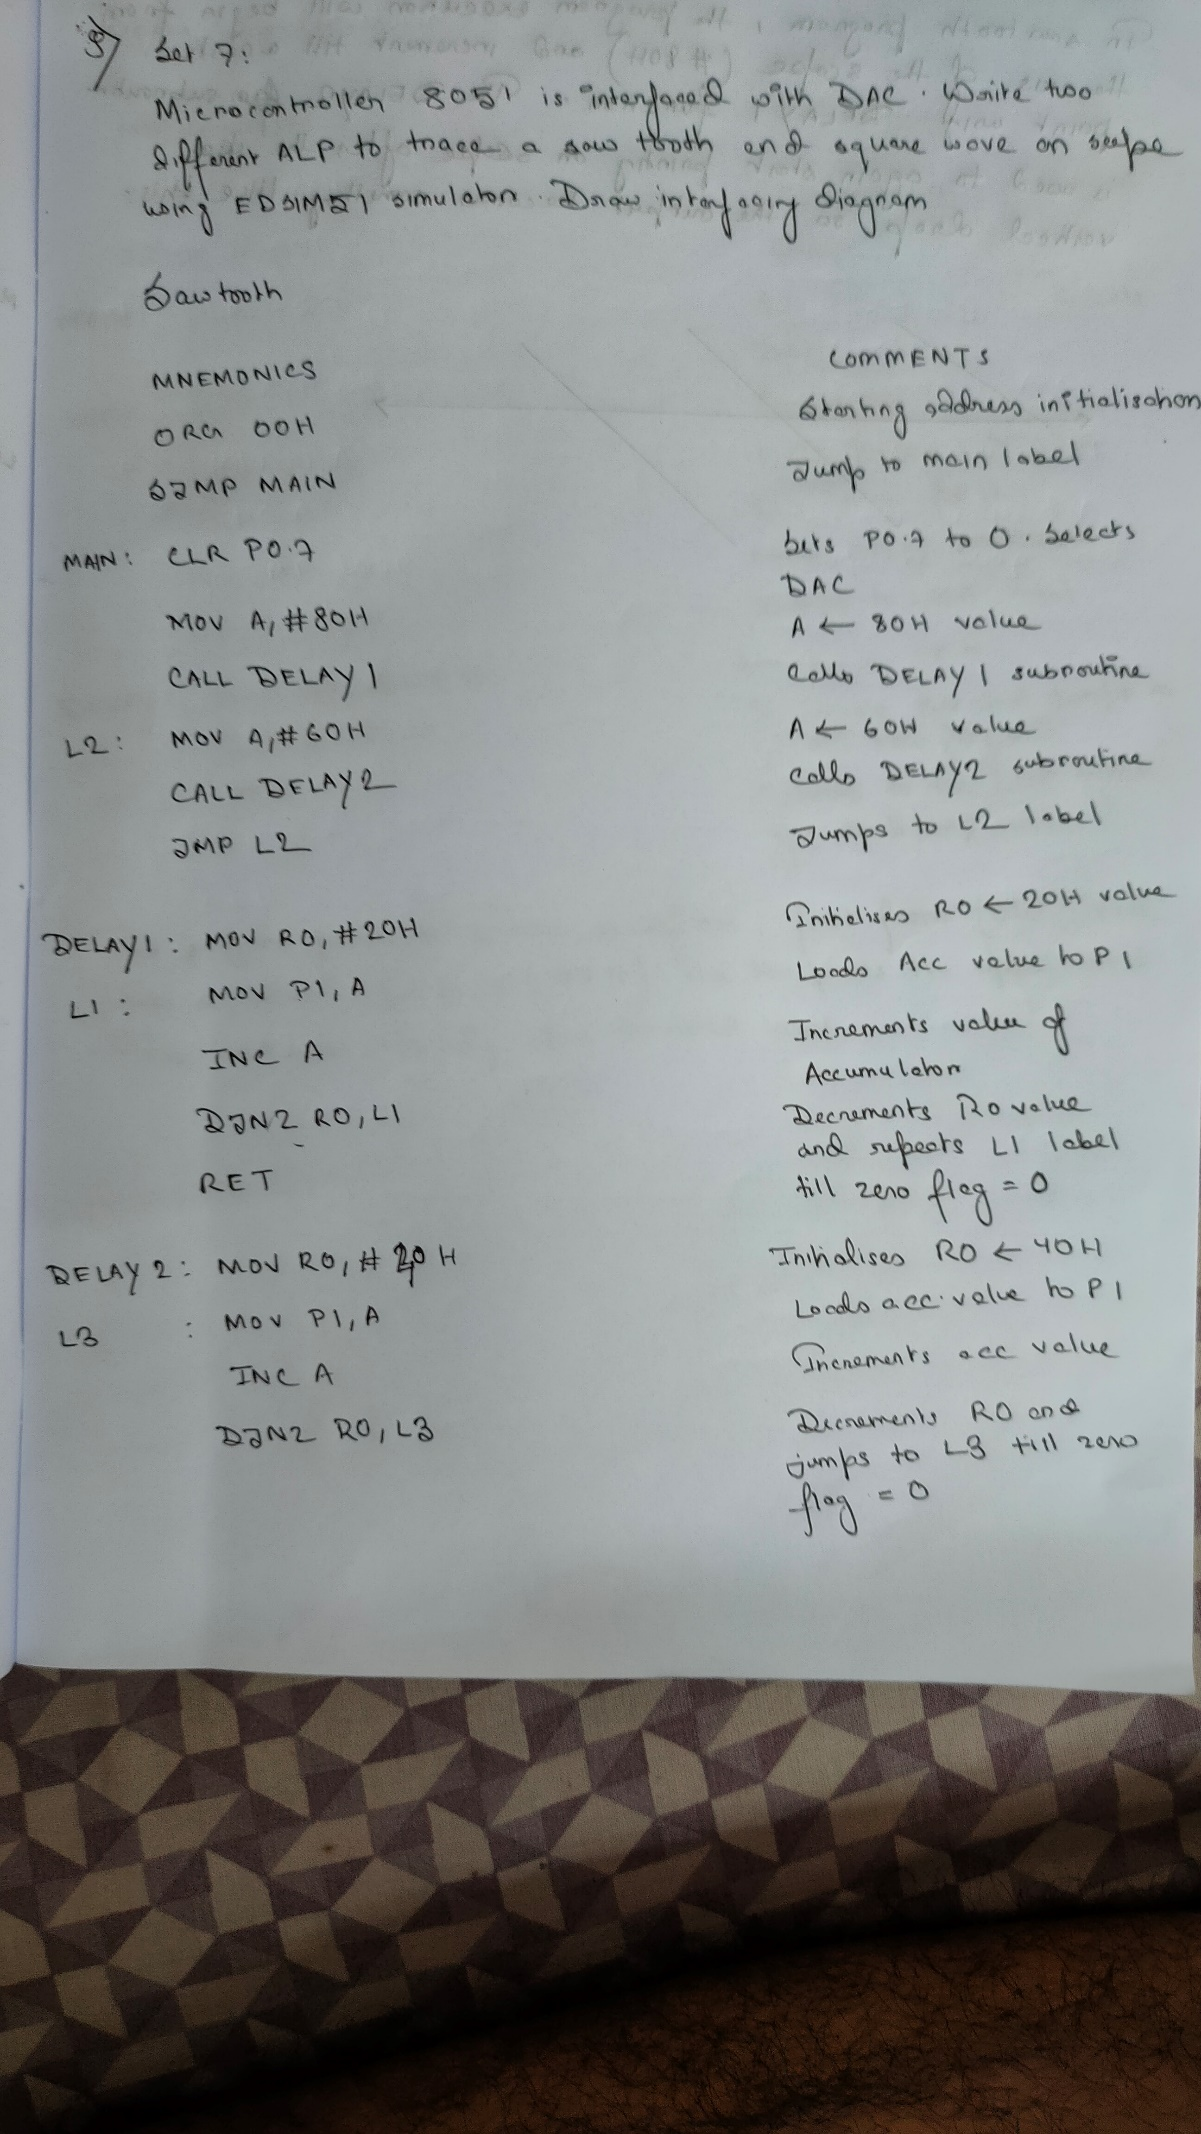 8) Set 7:
Microcontroller 8051 is interfaced with DAC. Write two
different ALP to trace a saw tooth and square wave on scope
using EDSIM51 simulator. Draw interfacing diagram
Sawtooth
MNEMONICS COMMENTS
ORG 00H Starting address initialisation
SJMP MAIN Jump to main label
MAIN: CLR P0.7 Sets P0.7 to 0. Selects
DAC
MOV A, #80H A ← 80H value
CALL DELAY1 Calls DELAY1 subroutine
L2: MOV A, #60H A ← 60H value
CALL DELAY2 Calls DELAY2 subroutine
JMP L2 Jumps to L2 label
DELAY1: MOV R0, #20H Initialises R0 ← 20H value
L1: MOV P1, A Loads Acc value to P1
INC A Increments value of
Accumulator
DJNZ R0, L1 Decrements R0 value
and repeats L1 label
RET till zero flag = 0
DELAY 2: MOV R0, #40H Initialises R0 ← 40H
L3 : MOV P1, A Loads acc. value to P1
INC A Increments acc value
DJNZ R0, L3 Decrements R0 and
jumps to L3 till zero
flag = 0